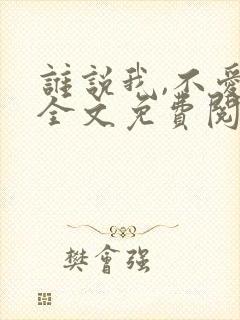 誰說我,不愛
全文免費閱
樊會强